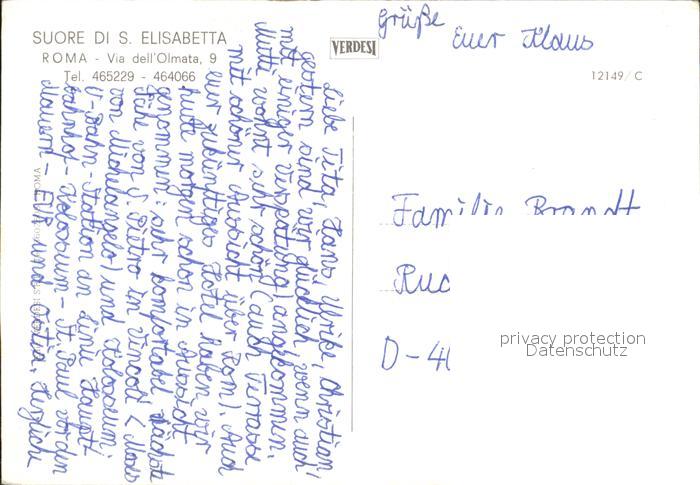 SUORE DI S. ELISABETTA
ROMA - Via dell'Olmata, 9
Tel. 465229 - 464066
VERDESI
12149/C
Liebe Tita, Hans, Ulrike, Christian,
gestern sind wir glücklich, wenn auch
mit einiger Verspätung, angekommen.
Mutti wohnt sehr schön (auch Terrasse
mit schöner Aussicht über Rom). Auch
euer zukünftiges Hotel haben wir
heute morgen schon in Aussicht
genommen: sehr komfortabel, nächste
Nähe von S. Pietro in Vincoli (Moses
von Michelangelo) und Kolosseum.
U-Bahn-Station an Linie Haupt-
bahnhof - Kolosseum - St. Paul vor den
Mauern - EUR und Ostia. Herzliche
Grüße
Euer Klaus
Familie Brandt
D-4
privacy protection
Datenschutz